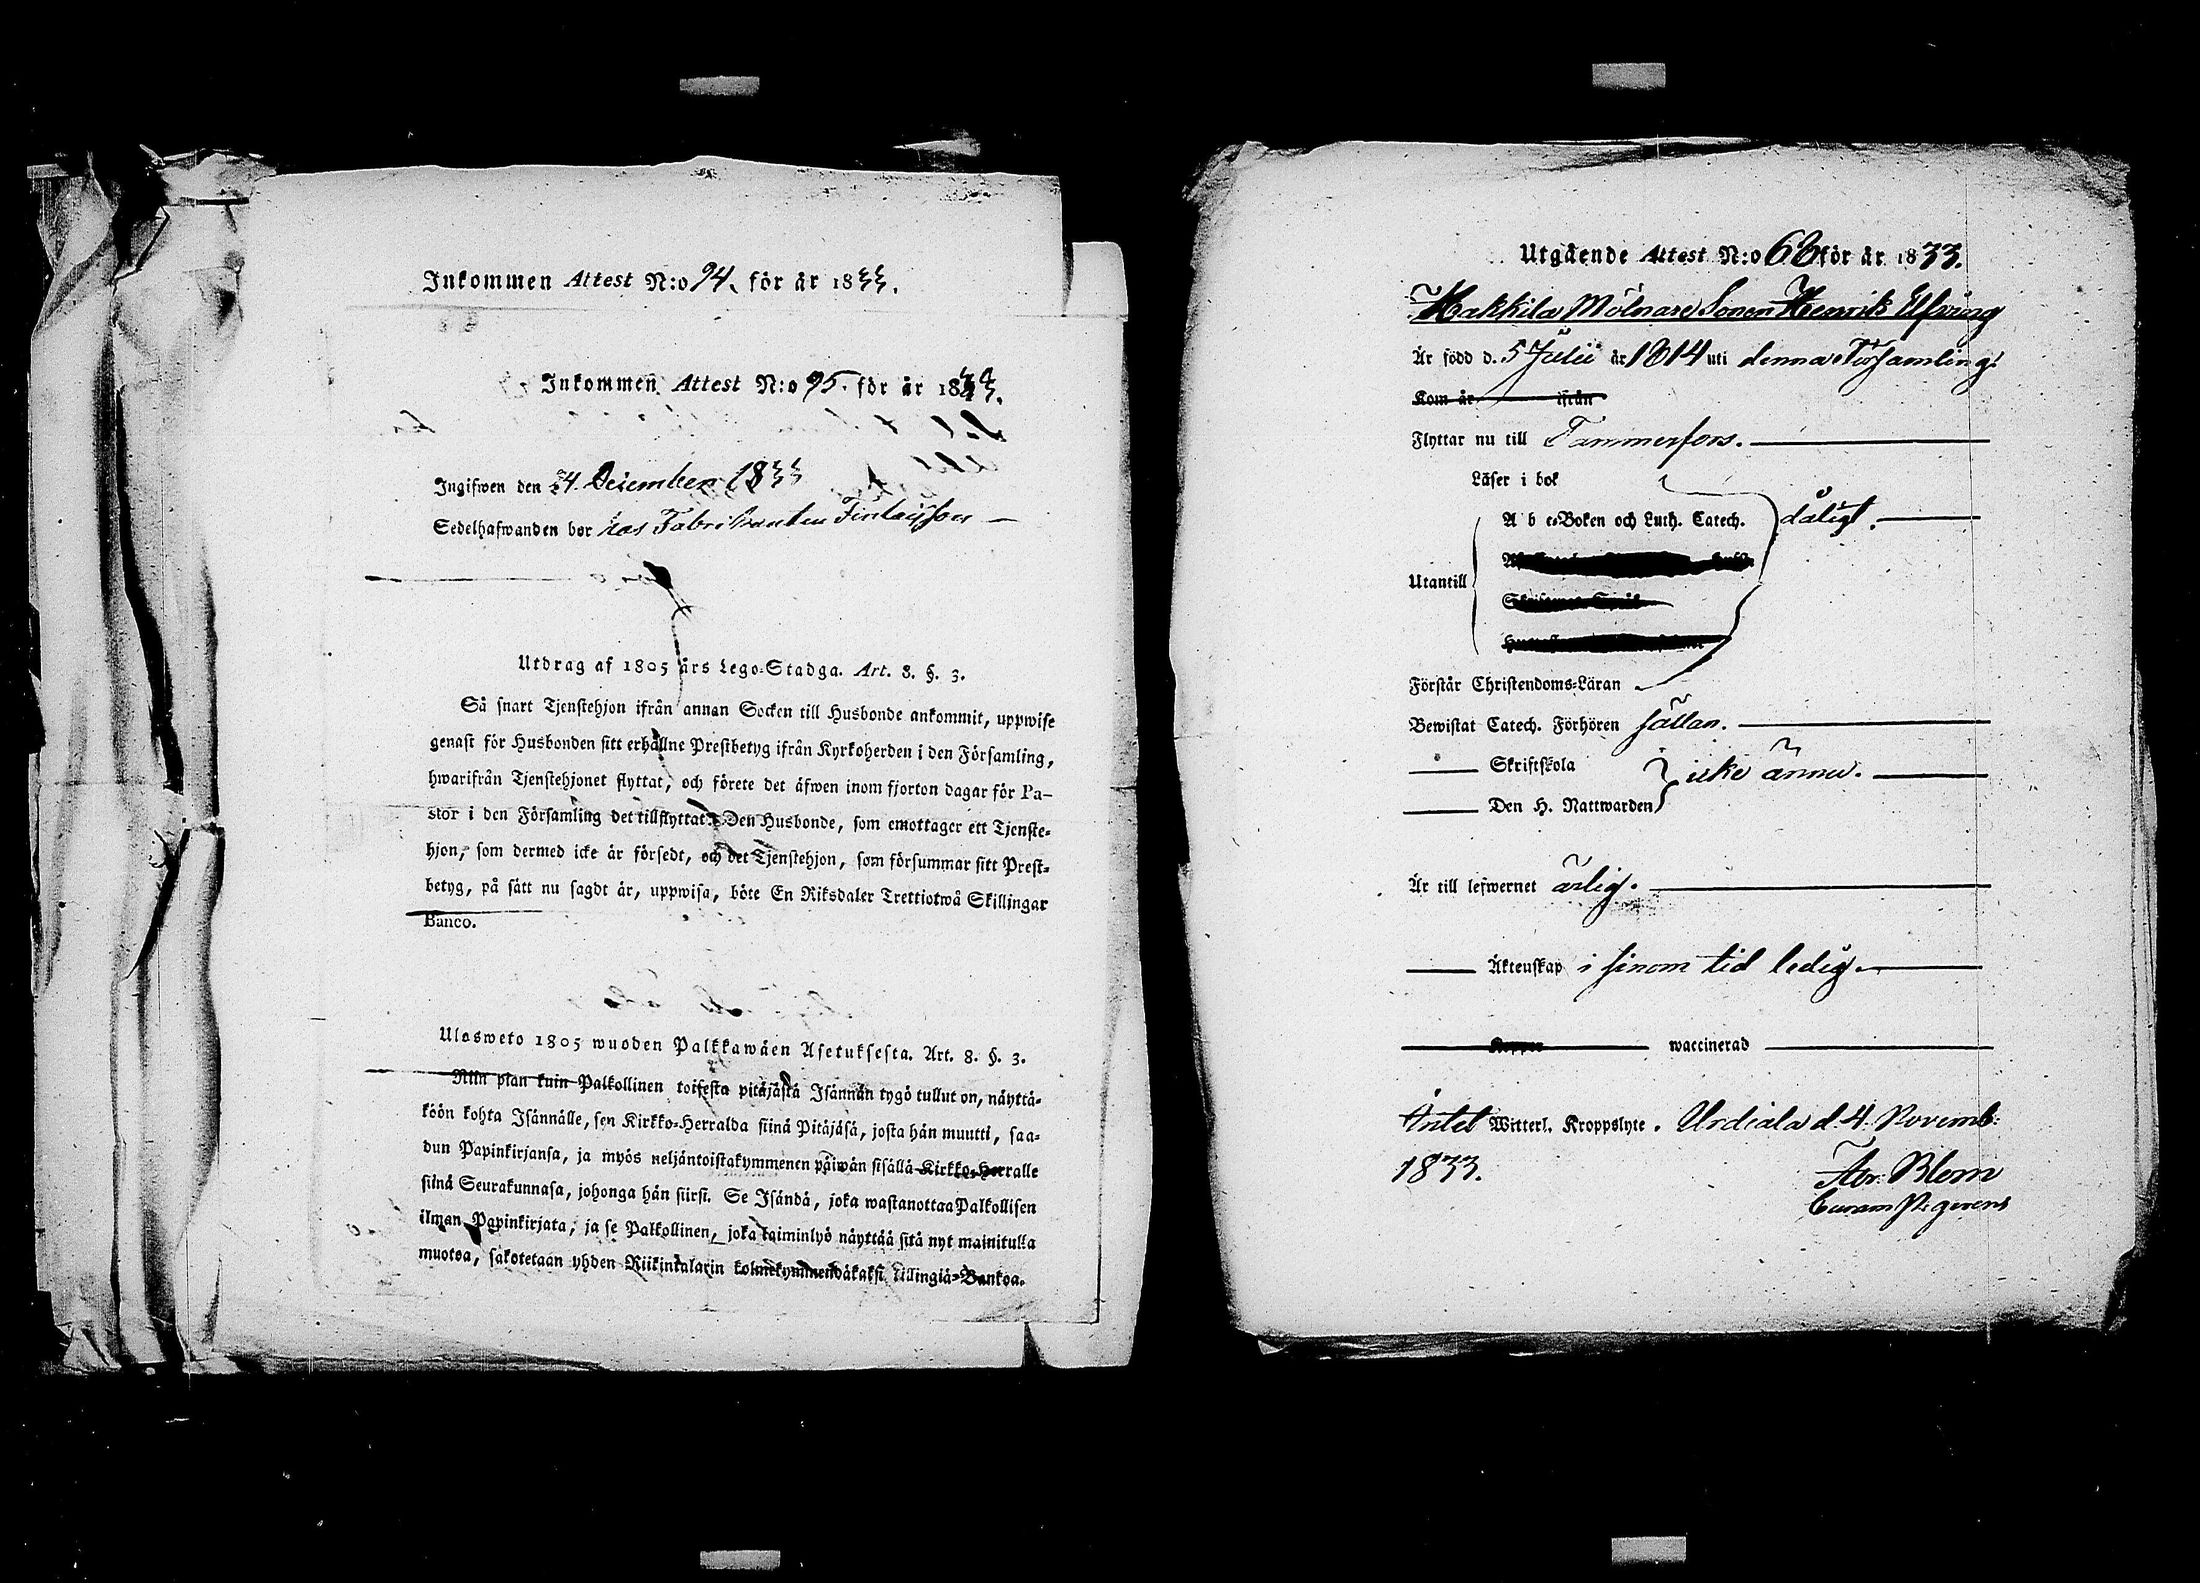 Inkommen Attest N:o 94. för år 1833.
Inkommen Attest N:o 95. för år 1833.
Ingifwen den 24. December 1833
Sedelhafwanden bor hos Fabrikanten Finlaysson —
Utdrag af 1805 års Lego-Stadga. Art. 8. §. 3.
Så snart Tjenstehjon ifrån annan Socken till Husbonde ankommit, uppwise
genast för Husbonden sitt erhållne Prestbetyg ifrån Kyrkoherden i den Församling,
hwarifrån Tjenstehjonet flyttat, och förete det äfwen inom fjorton dagar för Pa-
stor i den Församling det tillflyttat. Den Husbonde, som emottager ett Tjenste-
hjon, som dermed icke är försedt, och det Tjenstehjon, som försummar sitt Prest-
betyg, på sätt nu sagdt är, uppwisa, böte En Riksdaler Trettiotwå Skillingar
Banco.
Ulosweto 1805 wuoden Palkkawäen Asetuksesta. Art. 8. §. 3.
Niin pian kuin Palkollinen toisesta pitäjästä Isännän tygö tullut on, näyttä-
köön kohta Isännälle, sen Kirkko-Herralda siinä Pitäjäsä, josta hän muutti, saa-
dun Papinkirjansa, ja myös neljäntoistakymmenen päiwän sisällä Kirkko-Herralle
siinä Seurakunnasa, johonga hän siirsi. Se Isändä, joka wastanottaa Palkollisen
ilman Papinkirjata, ja se Palkollinen, joka laiminlyö näyttää sitä nyt mainitulla
muotoa, sakotetaan yhden Riikinkalarin kolmekymmendäkaksi killingiä Bankoa.
Utgående Attest N:o 68 för år 1833.
Hakkila Mölnare Sonen Henrik Elfving
Är född d. 5 Julii år 1814 uti denna Församling.
Kom år ifrån
Flyttar nu till Tammerfors.
Läser i bok
A b c-Boken och Luth. Catech. dåligt.
Utantill
Förstår Christendoms-Läran
Bewistat Catech. Förhören sällan.
Skriftskola icke ännu.
Den H. Nattwarden
Är till lefwernet ärlig.
Äktenskap i sinom tid ledig.
Koppor waccinerad
Intet Witterl. Kroppslyte. Urdiala d. 4. Novemb:
1833. Abr. Blom
Curam p. gerens